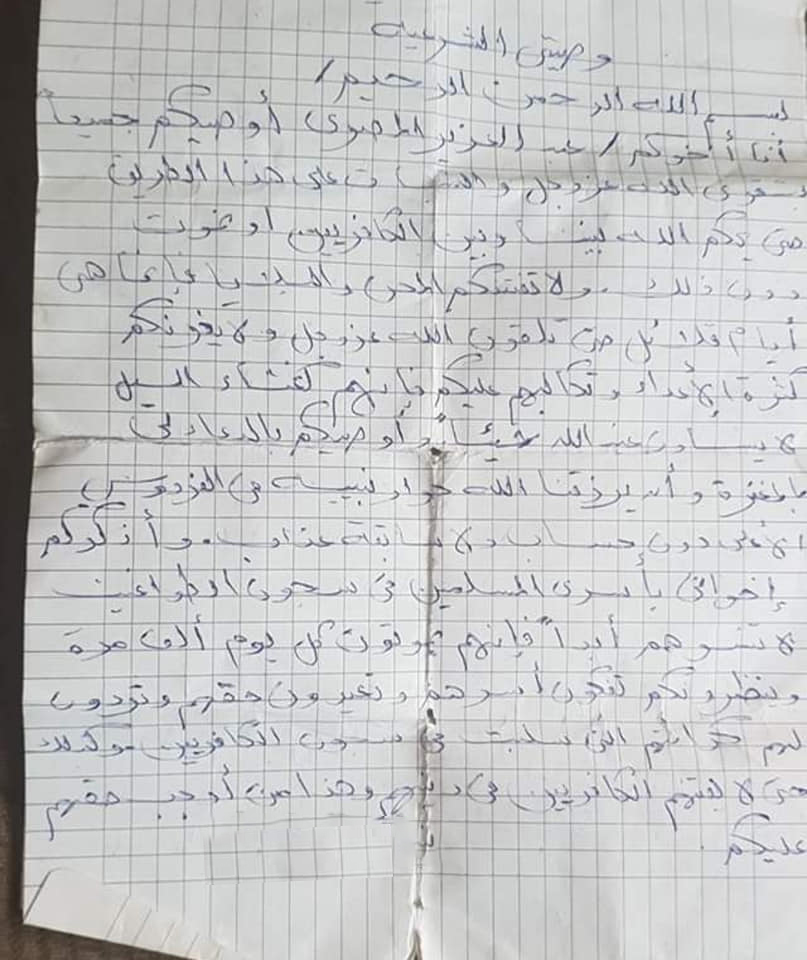 وصيتي الشرعية
بسم الله الرحمن الرحيم /
أنا أخوكم / عبد العزيز المصري أوصيكم جميعاً
بتقوى الله عز وجل والثبات على هذا الطريق
حتى يحكم الله بيننا وبين الكافرين أو نموت
دون ذلك . ولا تفتنكم المحن والدنيا فإنما هي
أيام قلائل حتى تلقون الله عز وجل ولا يغرنكم
كثرة الأعداء وتكالبهم عليكم فإنهم كغثاء السيل
لا يساون عند الله شيئاً وأوصيكم بالدعاء لي
بالمغفرة وأن يرزقنا الله جوار نبيه في الفردوس
الأعلى دون حساب ولا سابقة عذاب. وأذكركم
إخواني بأسرى المسلمين في سجون الطواغيت
لا تنسوهم أبداً فإنهم يموتون كل يوم ألف مرة
وينظرونكم تفكون أسرهم وتجيبون حقهم وتردون
لهم كرامتهم التي سلبت في سجون الكافرين وكذلك
حتى لا يفتنهم الكافرين في دينهم وهذا من أوجب حقهم
عليكم .